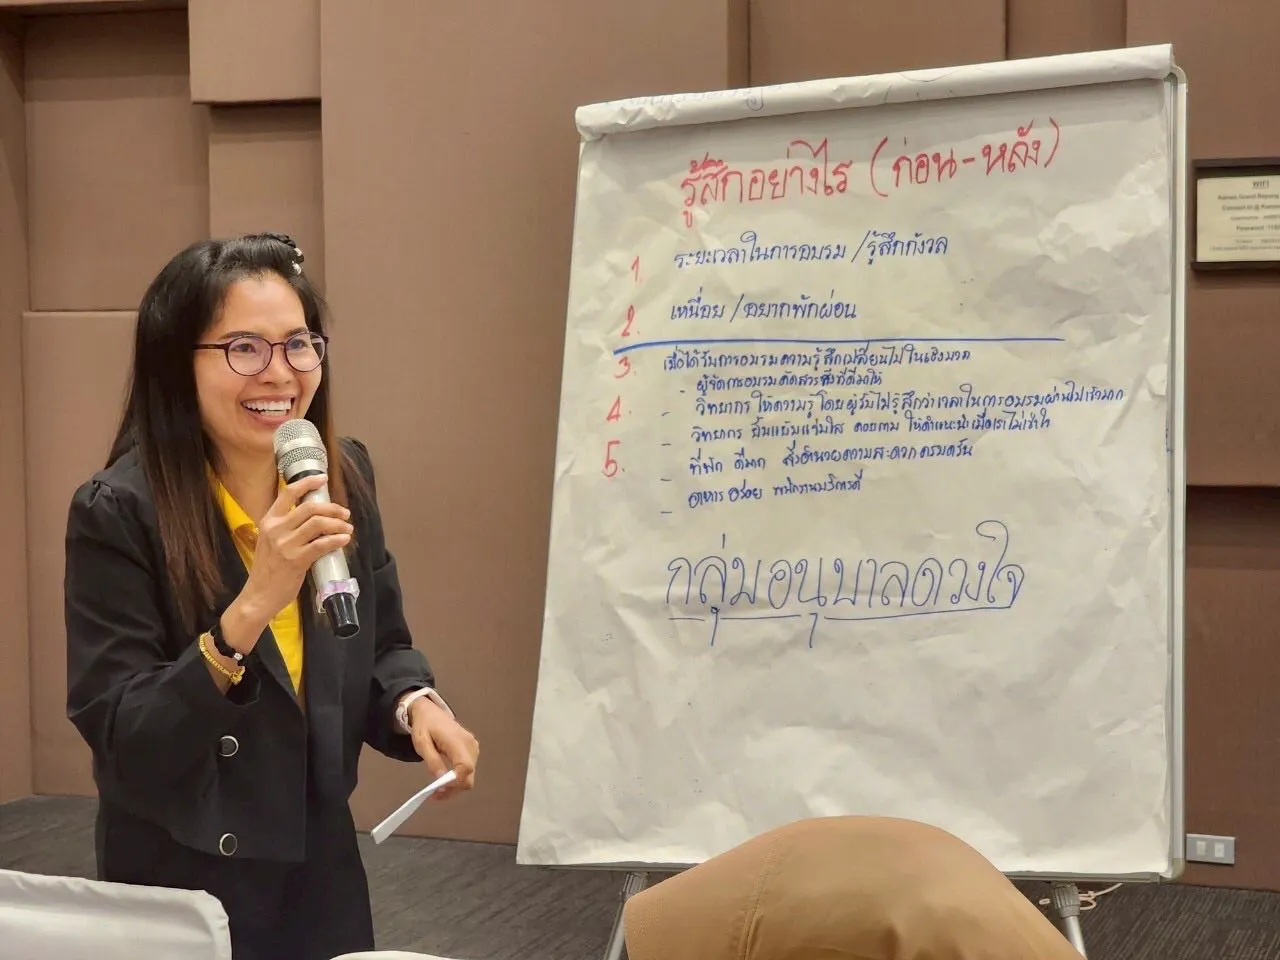 รู้สึกอย่างไร (ก่อน-หลัง)
1. ระยะเวลาในการอบรม /รู้สึกกังวล
2. เหนื่อย /อยากพักผ่อน
3. เมื่อได้รับการอบรมความรู้สึกเปลี่ยนไปในเชิงบวก
- ผู้จัดการอบรมคัดสรรสิ่งที่ดีมาให้
4. - วิทยากร ให้ความรู้โดยผู้รับไม่รู้สึกว่าเวลาในการอบรมผ่านไปเร็วมาก
- วิทยากร ยิ้มแย้มแจ่มใส คอยถาม ให้คำแนะนำเมื่อเราไม่เข้าใจ
5. - ที่พัก ดีมาก สิ่งอำนวยความสะดวกครบครัน
- อาหาร อร่อย พนักงานบริการดี
กลุ่มอนุบาลดวงใจ
WIFI
Password